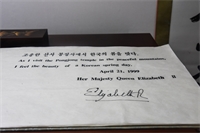 조용한 산사 봉정사에서 한국의 봄을 맞다.
As I visit the Pongjong temple in the peaceful mountains,
I feel the beauty of a Korean spring day.
April 21, 1999
Her Majesty Queen Elizabeth II
Elizabeth R